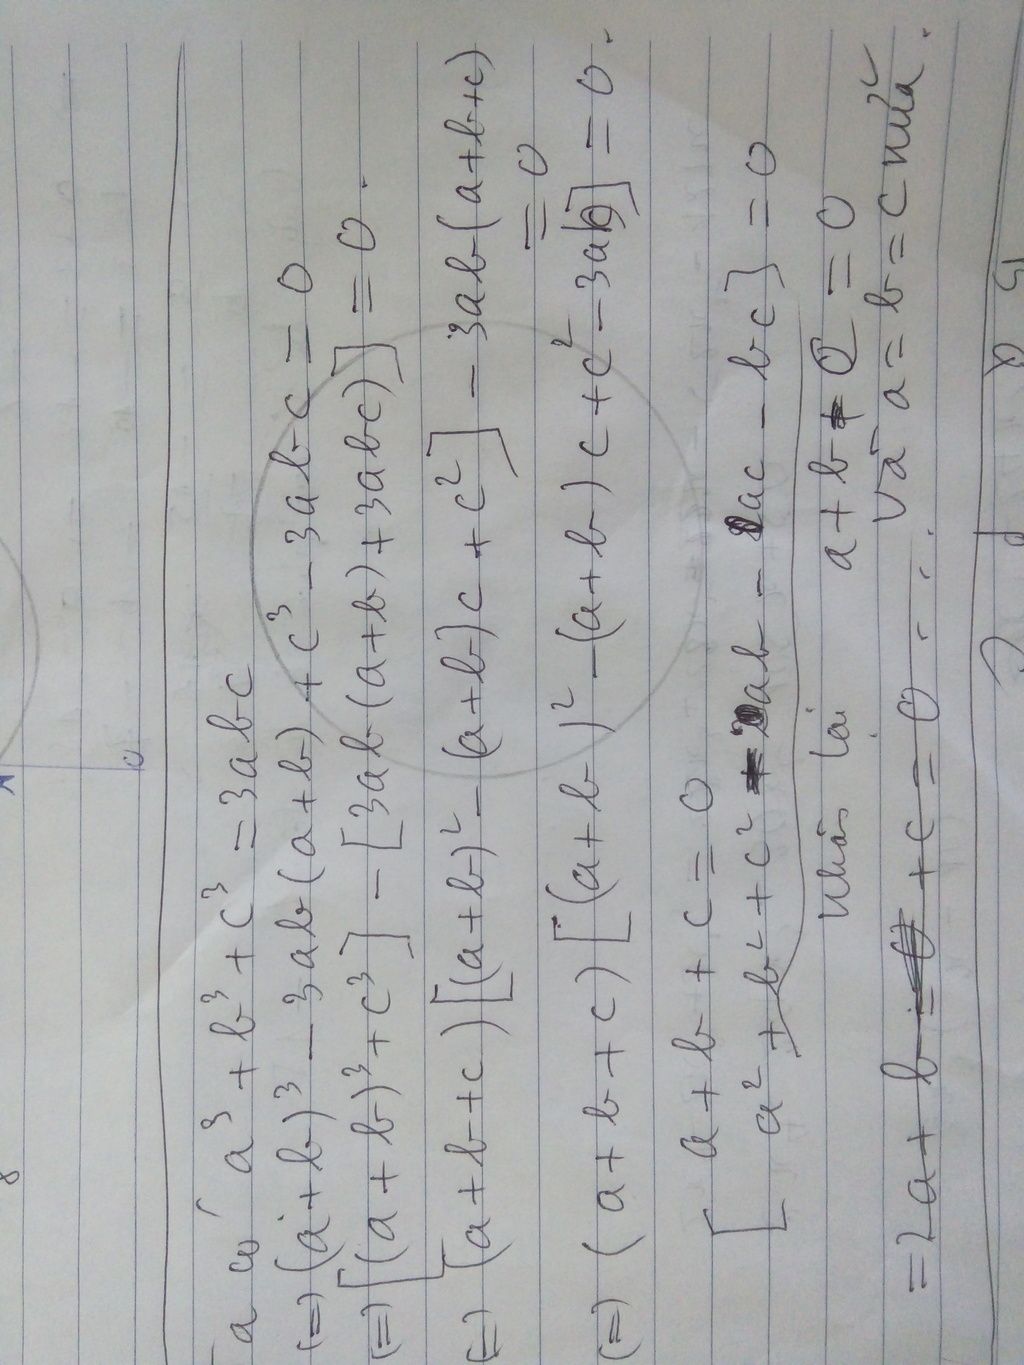 Ta có a³ + b³ + c³ = 3abc
(=) (a+b)³ - 3ab(a+b) + c³ - 3abc = 0
(=) [(a+b)³ + c³] - [3ab(a+b) + 3abc)] = 0.
(=) (a+b+c) [(a+b)² - (a+b)c + c²] - 3ab(a+b+c)
= 0
(=) (a+b+c) [(a+b)² - (a+b)c + c² - 3ab] = 0.
[ a + b + c = 0
a² + b² + c² - ab - ac - bc } = 0
Nhân lại a + b + c = 0
và a = b = c nữa.
=) a + b + c = 0 ...